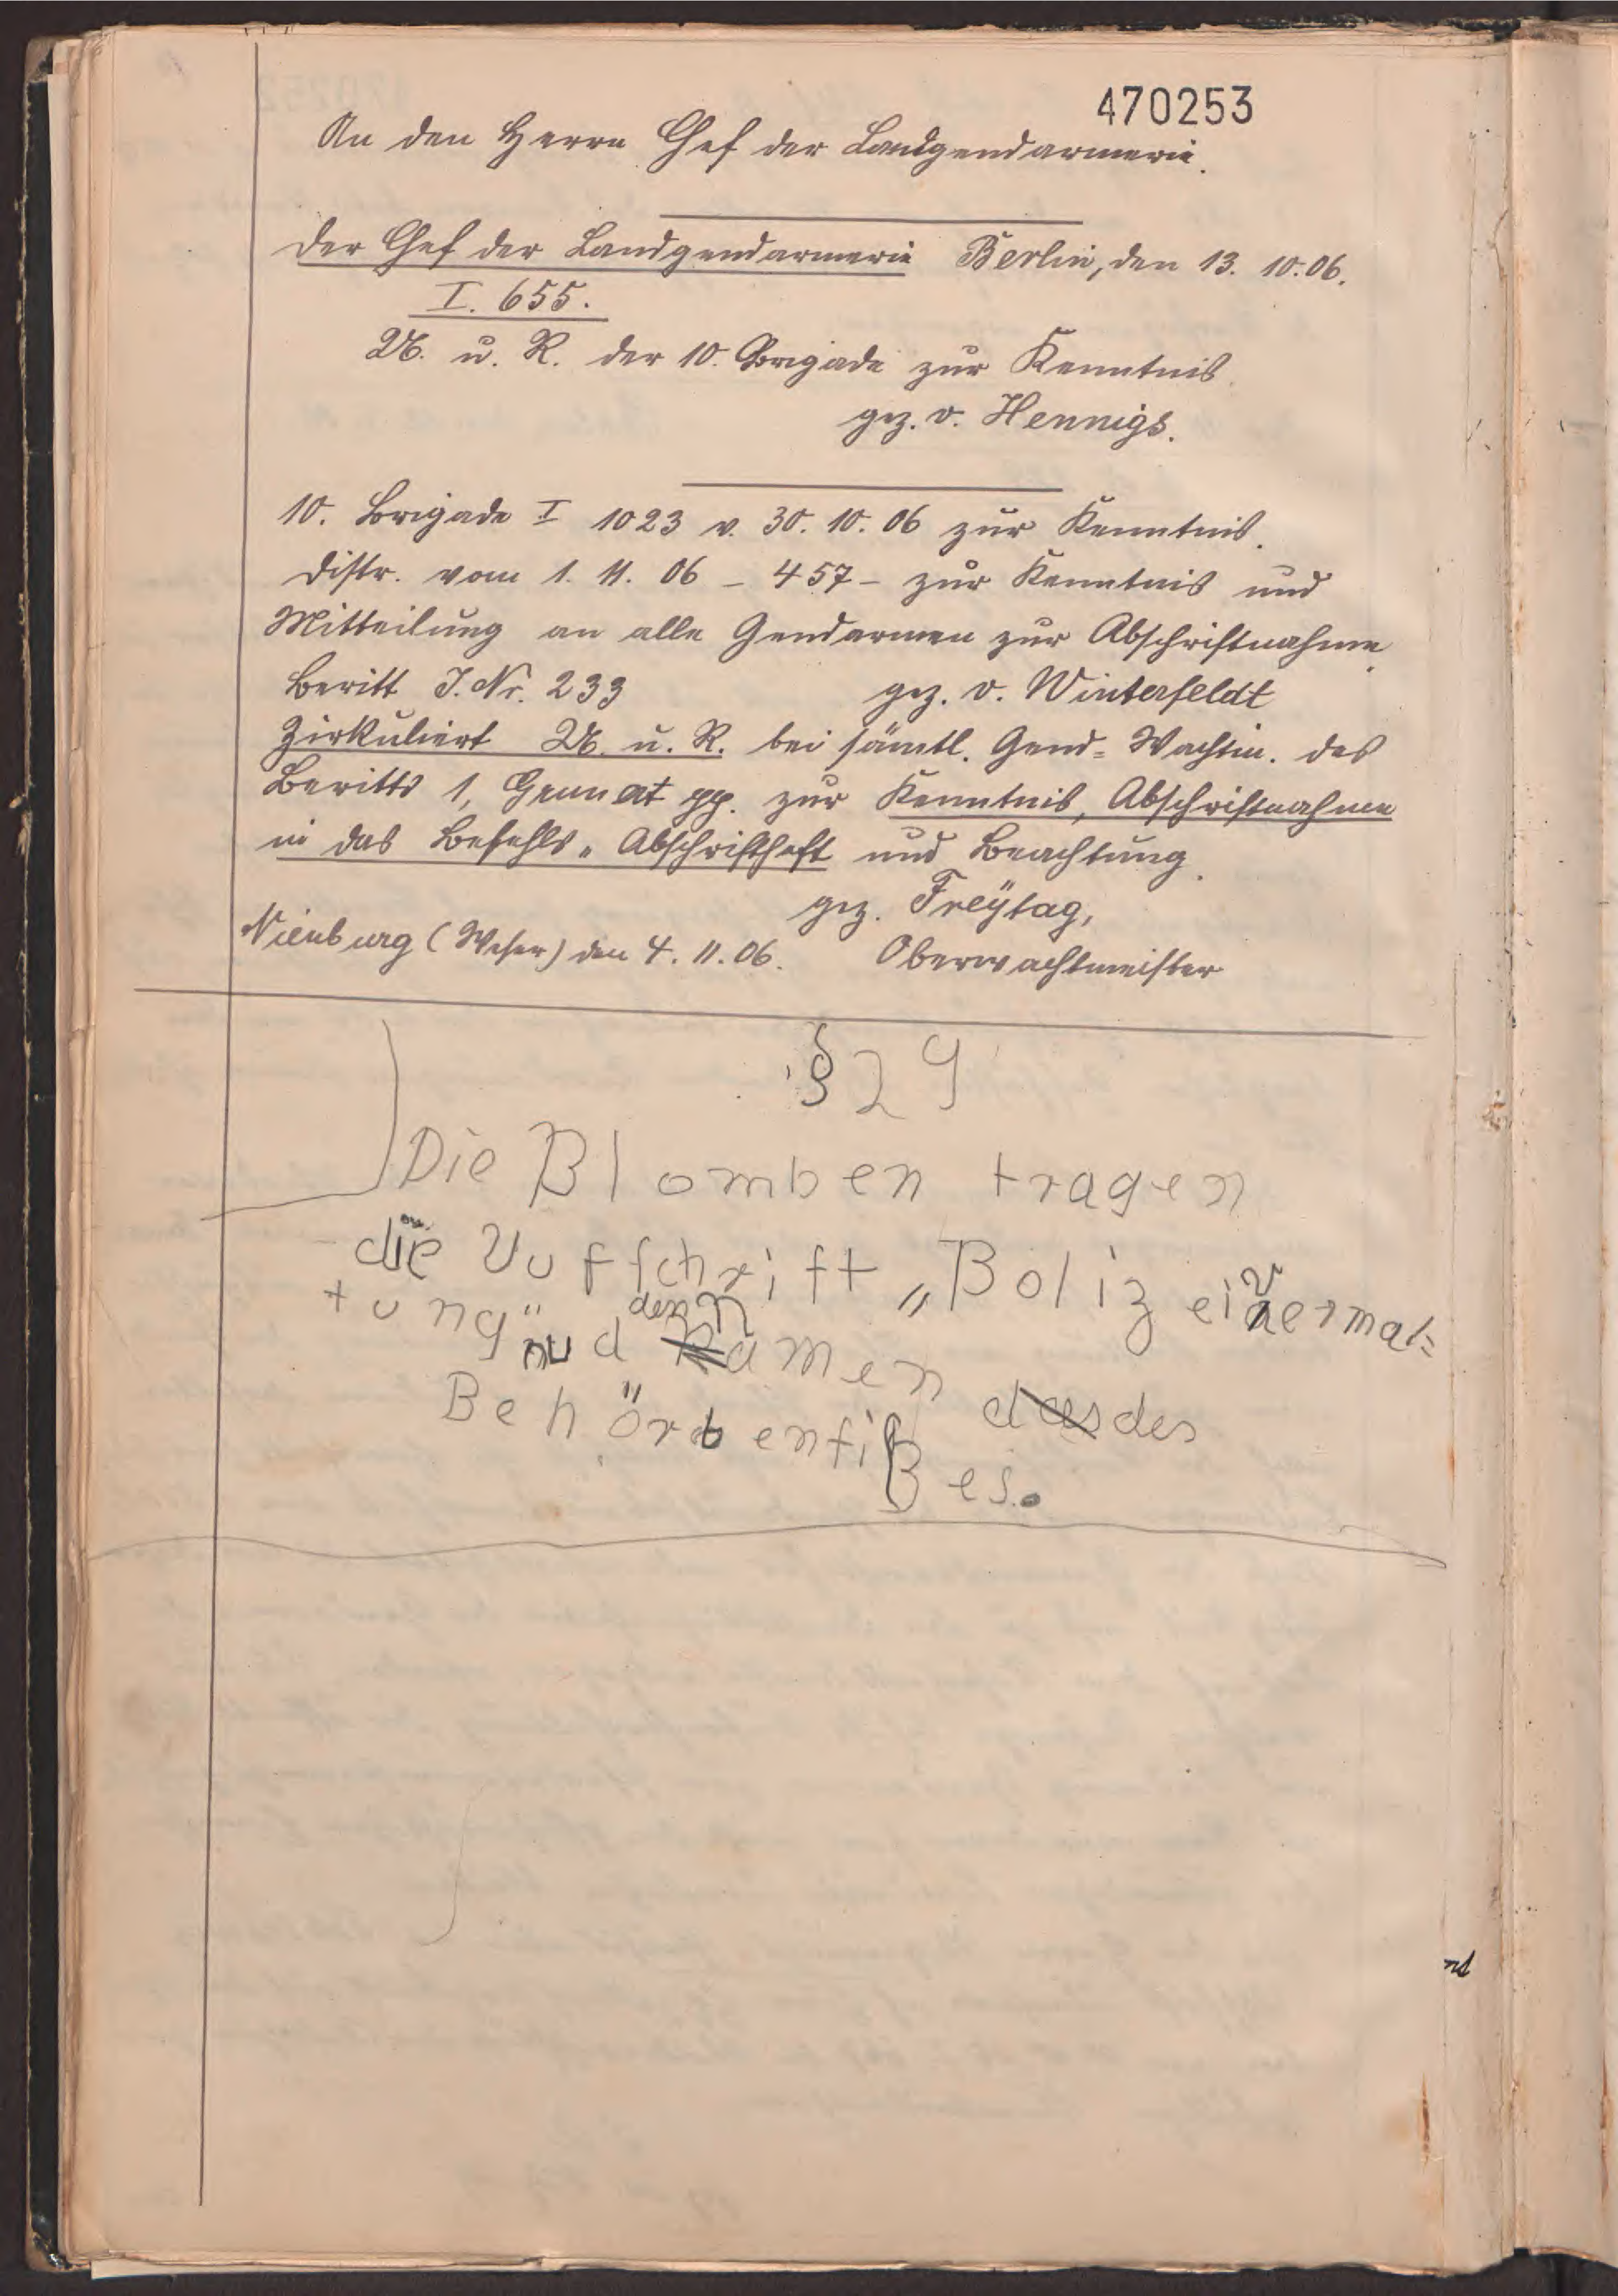 470253
An den Herrn Chef der Landgendarmerie.
Der Chef der Landgendarmerie Berlin, den 13. 10. 06.
I. 655.
U. u. R. der 10. Brigade zur Kenntnis.
gez. v. Hennigs.
10. Brigade I 1023 v. 30. 10. 06 zur Kenntnis.
Distr. vom 1. 11. 06 – 457 – zur Kenntnis und
Mitteilung an alle Gendarmen zur Abschriftnahme.
Beritt J. Nr. 233 gez. v. Winterfeldt
Zirkuliert U. u. R. bei sämtl. Gend= Wachtm. des
Beritts 1, pp. zur Kenntnis, Abschriftnahme
in das Befehls„ Abschriftheft und Beachtung.
gez. Freÿtag,
Nienburg (Weser) den 4. 11. 06. Oberwachtmeister
§ 29
Die Blomben tragen
die Aufschrift „Bolizeiverwal=
tung" und den Namen das des
Behördensißes.